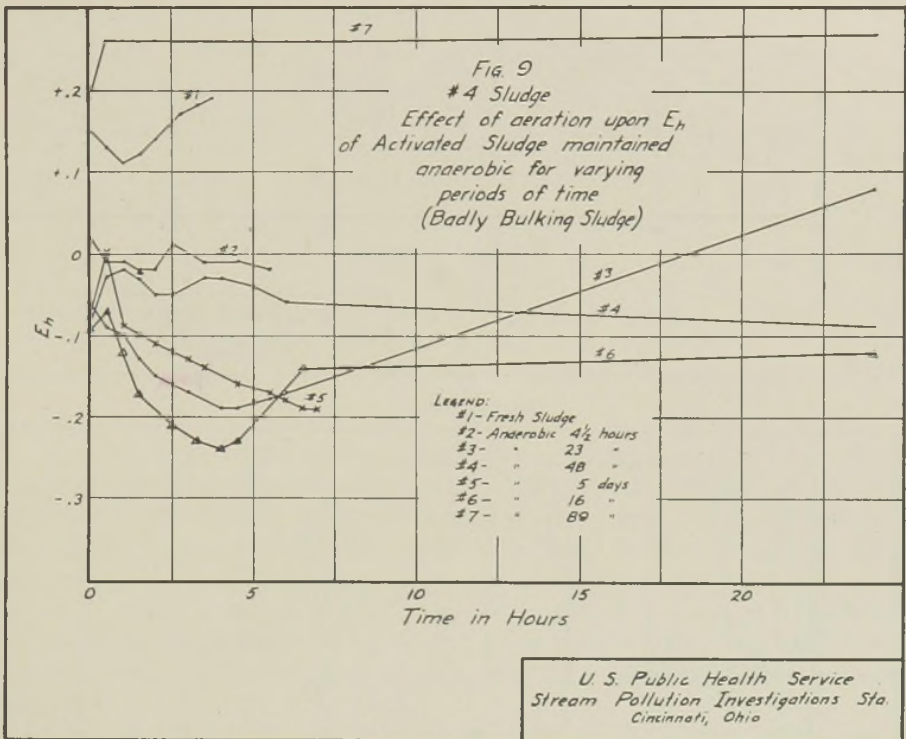 #7
FIG. 9
#4 Sludge
Effect of aeration upon Eh
of Activated Sludge maintained
anaerobic for varying
periods of time
(Badly Bulking Sludge)
+.2
#1
+.1
0
#2
#3
Eh
#4
-.1
#6
#5
-.2
LEGEND:
#1- Fresh Sludge
#2- Anaerobic 4½ hours
#3- " 23 "
#4- " 48 "
#5- " 5 days
#6- " 16 "
#7- " 89 "
-.3
0 5 10 15 20
Time in Hours
U. S. Public Health Service
Stream Pollution Investigations Sta.
Cincinnati, Ohio